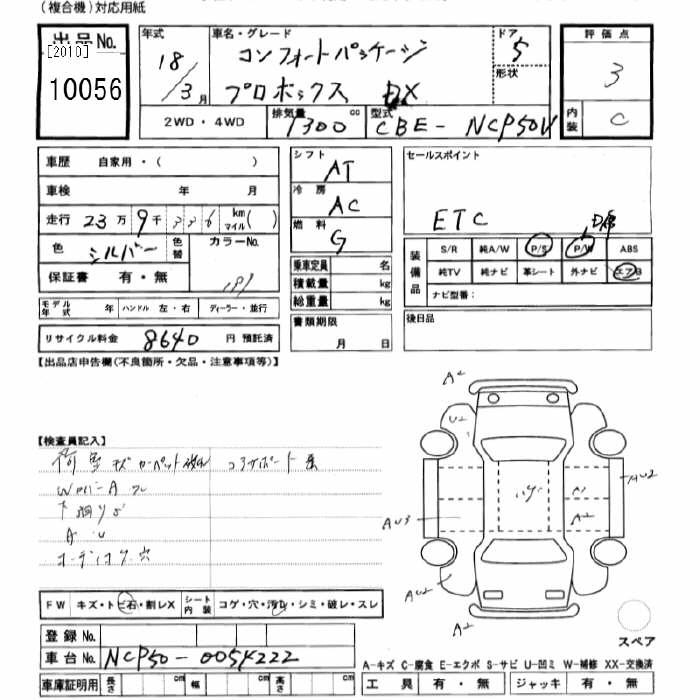 (複合機)対応用紙
出品No.
[2010]
10056
年式
18/3月
車名・グレード
コンフォートパッケージ
プロボックス DX
ドア
5
形状
評価点
3
内装
C
2WD・4WD
排気量
1300 cc
型式
CBE- NCP50V
車歴 自家用・( )
車検 年 月
走行 23万9千226 km マイル( )
色 シルバー 色替 カラーNo.
199
保証書 有・無
モデル年式 年 ハンドル 左・右 ディーラー・並行
リサイクル料金 8640 円 預託済
シフト
AT
冷房
AC
燃料
G
乗車定員 名
積載量 kg
総重量 kg
書類期限
月 日
セールスポイント
ETC
装備品
S/R 純A/W P/S P/W ABS
純TV 純ナビ 革シート 外ナビ エアB
ナビ型番:
後日品
【出品店申告欄(不良箇所・欠品・注意事項等)】
【検査員記入】
コアサポート
A U
穴
FW キズ・トビ石・割レX シート内装 コゲ・穴・汚レ・シミ・破レ・スレ
登録No.
車台No. NCP50-0054222
車庫証明用 長さ cm 幅 cm 高さ cm
A2
U2
AU2
AU3
A2
AU2
A2
スペア
A-キズ C-腐食 E-エクボ S-サビ U-凹ミ W-補修 XX-交換済
工具 有・無 ジャッキ 有・無